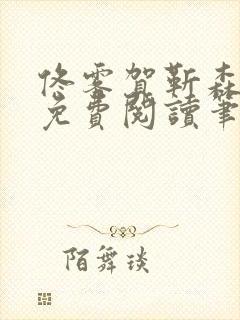 佟零賀靳森
免費閱讀筆
陌舞琰